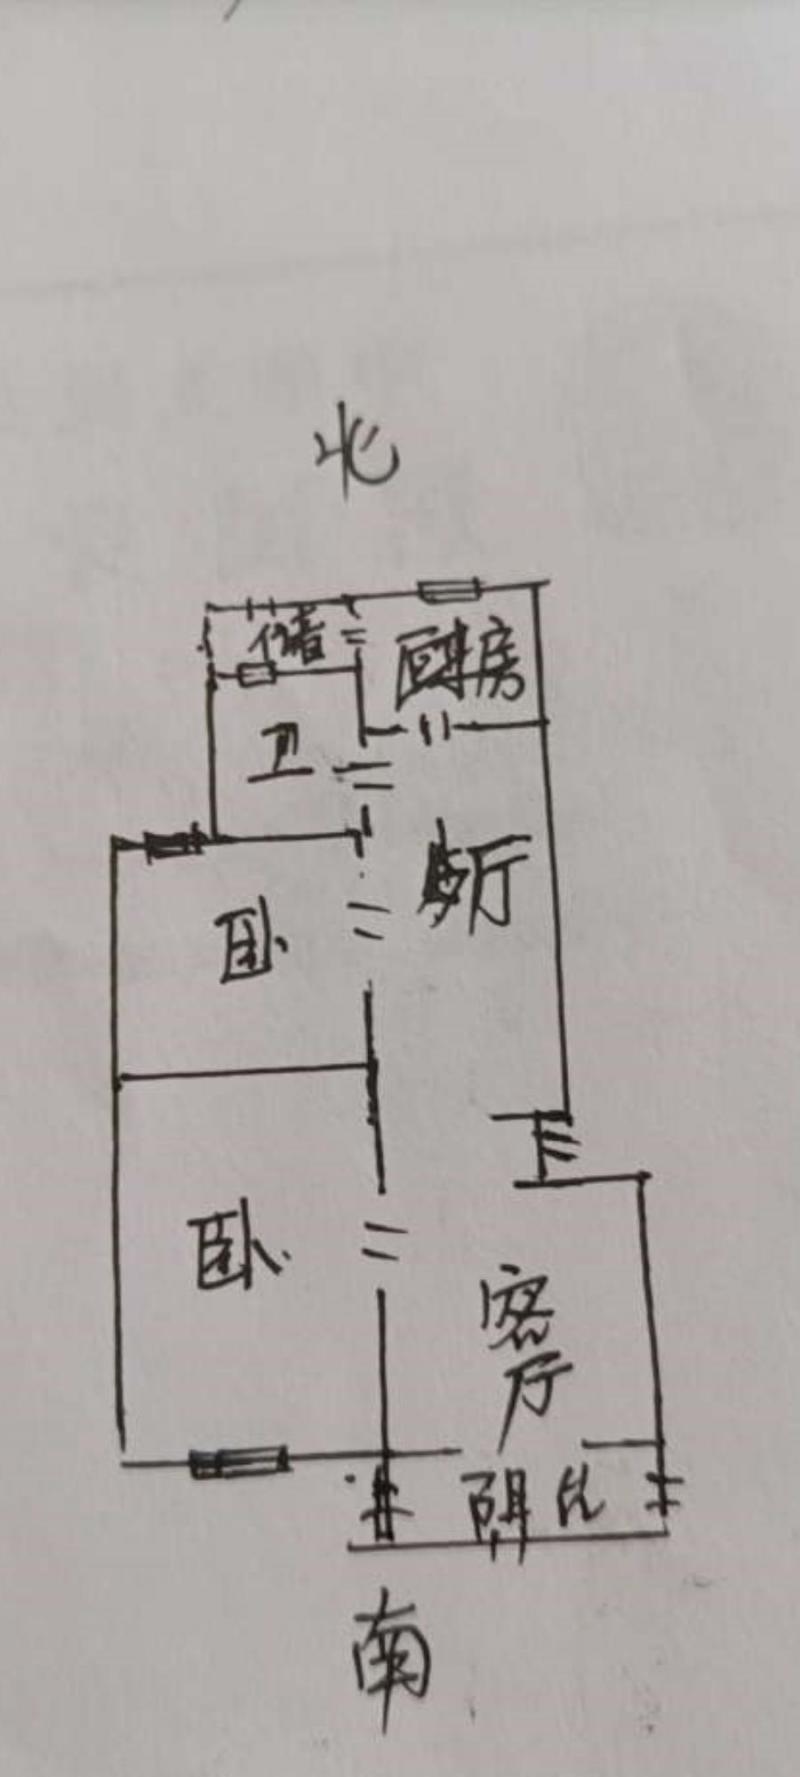 北
储
厨房
卫
餐厅
卧
卧
客厅
阳台
南